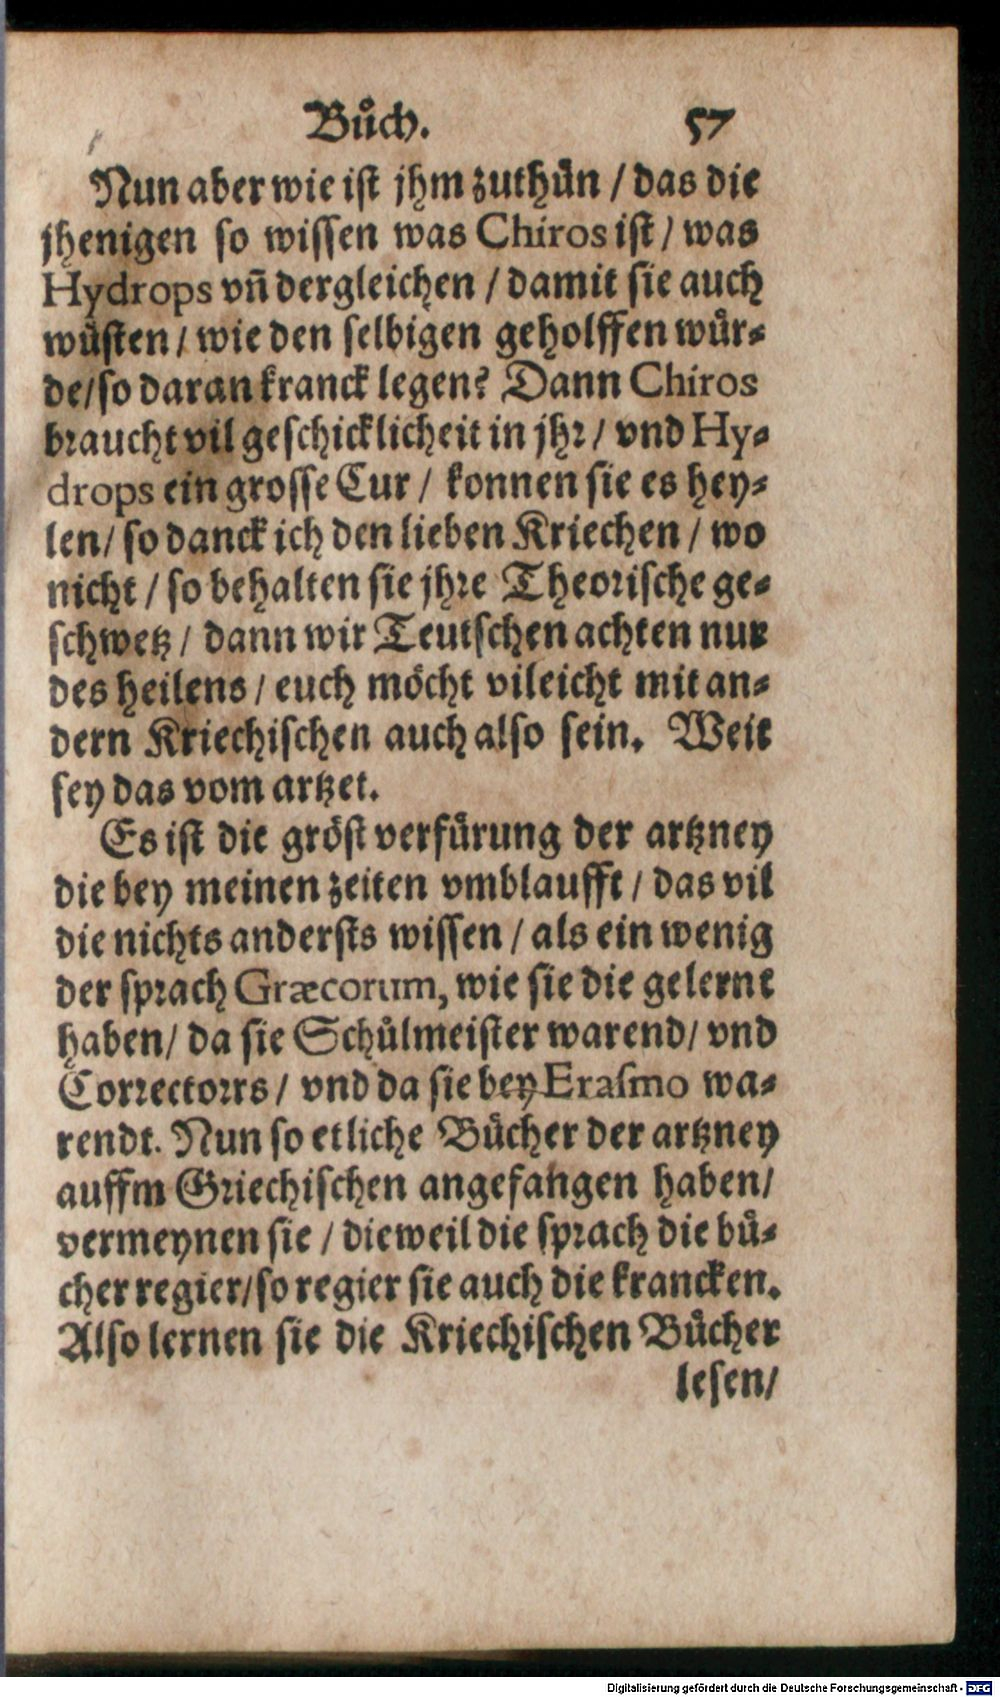 Bůch. 57
Nun aber wie ist jhm zuthůn / das die
jhenigen so wissen was Chiros ist / was
Hydrops vñ dergleichen / damit sie auch
wůsten / wie den selbigen geholffen wůr-
de / so daran kranck legen? Dann Chiros
braucht vil geschicklicheit in jhr / vnd Hy-
drops ein grosse Cur / konnen sie es hey-
len / so danck ich den lieben Kriechen / wo
nicht / so behalten sie jhre Theorische ge-
schwetz / dann wir Teutschen achten nur
des heilens / euch möcht vileicht mit an-
dern Kriechischen auch also sein. Weit
sey das vom artzet.
Es ist die gröst verfůrung der artzney
die bey meinen zeiten vmblaufft / das vil
die nichts andersts wissen / als ein wenig
der sprach Græcorum, wie sie die gelernt
haben / da sie Schůlmeister warend / vnd
Correctorrs / vnd da sie bey Erasmo wa-
rendt. Nun so etliche Bůcher der artzney
auffm Griechischen angefangen haben /
vermeynen sie / dieweil die sprach die bů-
cher regier / so regier sie auch die krancken.
Also lernen sie die Kriechischen Bůcher
lesen /
Digitalisierung gefördert durch die Deutsche Forschungsgemeinschaft - DFG